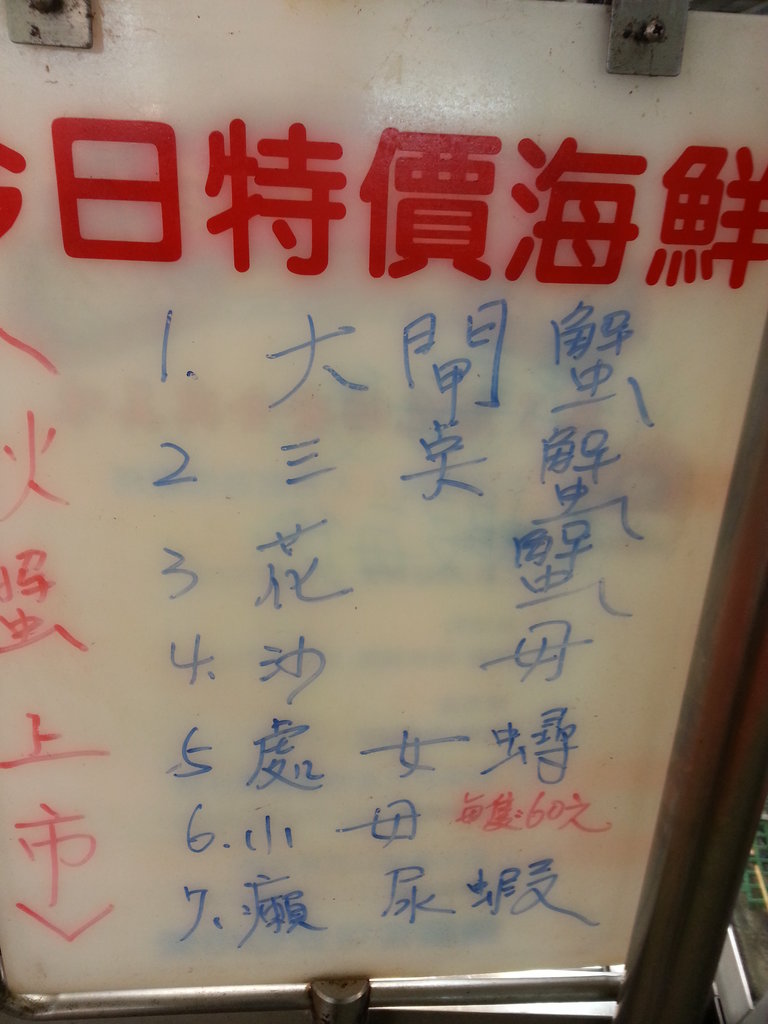 今日特價海鮮
1. 大閘蟹
2 三点蟹
3 花蟹
4. 沙母
5 處女蟳
6. 小母 每隻:60元
7. 瀨尿蝦
火蟹上市